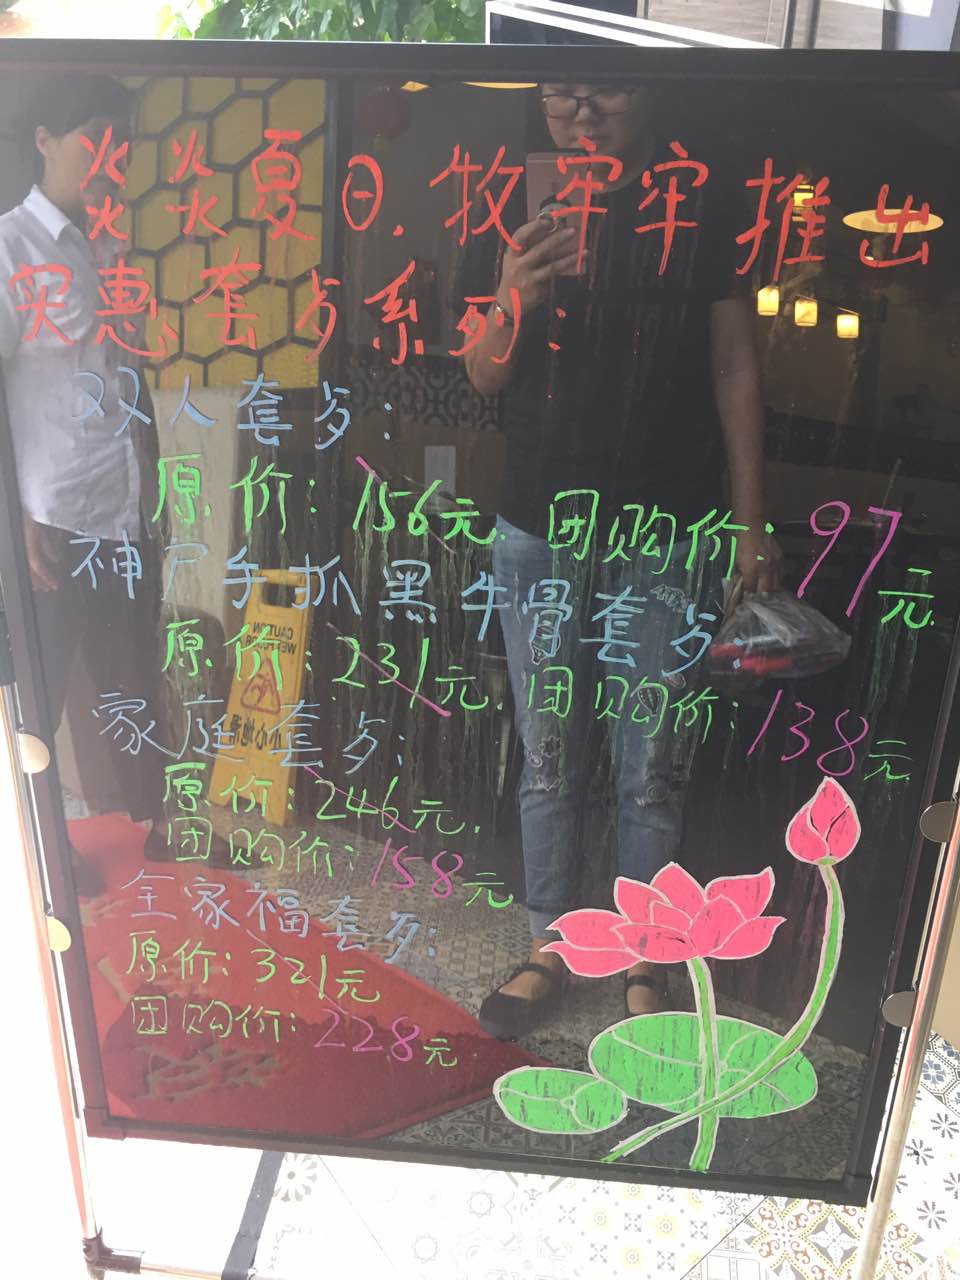 炎炎夏日.牧牢牢推出
实惠套歺系列:
双人套歺:
原价:156元.团购价:97元
神户手抓黑牛骨套歺:
原价:231元.团购价:138元
家庭套歺:
原价:246元.
团购价:158元
全家福套歺:
原价:321元
团购价:228元
CAUTION
WET FLOOR
小心地滑